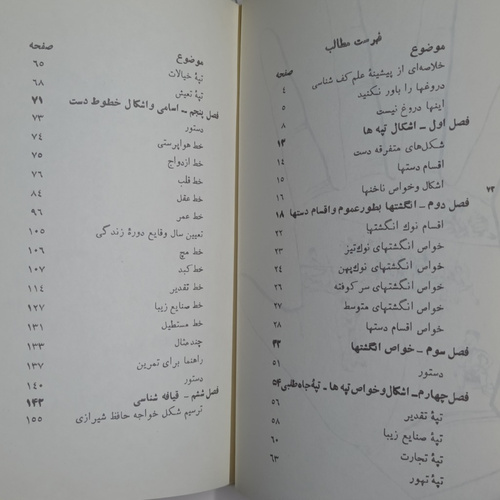 فهرست مطالب
موضوع صفحه
خلاصه‌ای از پیشینهٔ علم کف شناسی ۴
دروغها را باور نکنید ۵
اینها دروغ نیست ۸
فصل اول ـ اشکال تپه ها ۱۲
شکل‌های متفرقه دست ۱۴
اقسام دستها ۱۵
اشکال وخواص ناختها ۱۶
فصل دوم ـ انگشتها بطورعموم واقسام دستها ۱۸
اقسام نوك انگشتها ۲۲
خواص انگشتهای نوك‌تیز ۲۳
خواص انگشتهای نوك‌پهن ۲۴
خواص انگشتهای سرکوفته ۲۶
خواص انگشتهای متوسط ۲۷
خواص اقسام دستها ۲۸
فصل سوم ـ خواص انگشتها ۴۲
دستور ۵۱
فصل چهارم ـ اشکال وخواص تپه ها ـ تپهٔ جاه‌طلبی ۵۴
تپهٔ تقدیر ۵۶
تپهٔ صنایع زیبا ۵۸
تپهٔ تجارت ۶۰
تپهٔ تهور ۶۳
۷۳
موضوع صفحه
تپهٔ خیالات ۶۵
تپهٔ تعیش ۶۸
فصل پنجم ـ اسامی واشکال خطوط دست ۷۱
دستور ۷۳
خط هواپرستی ۷۴
خط ازدواج ۷۵
خط قلب ۷۶
خط عقل ۸۴
خط عمر ۹۶
تعیین سال وقایع دورهٔ زندگی ۱۰۵
خط مچ ۱۰۶
خط کبد ۱۰۷
خط تقدیر ۱۱۴
خط صنایع زیبا ۱۲۷
خط مستطیل ۱۳۱
چند مثال ۱۳۳
راهنما برای تمرین ۱۳۷
دستور ۱۴۰
فصل ششم ـ قیافه شناسی ۱۴۳
ترسیم شکل خواجه حافظ شیرازی ۱۵۵